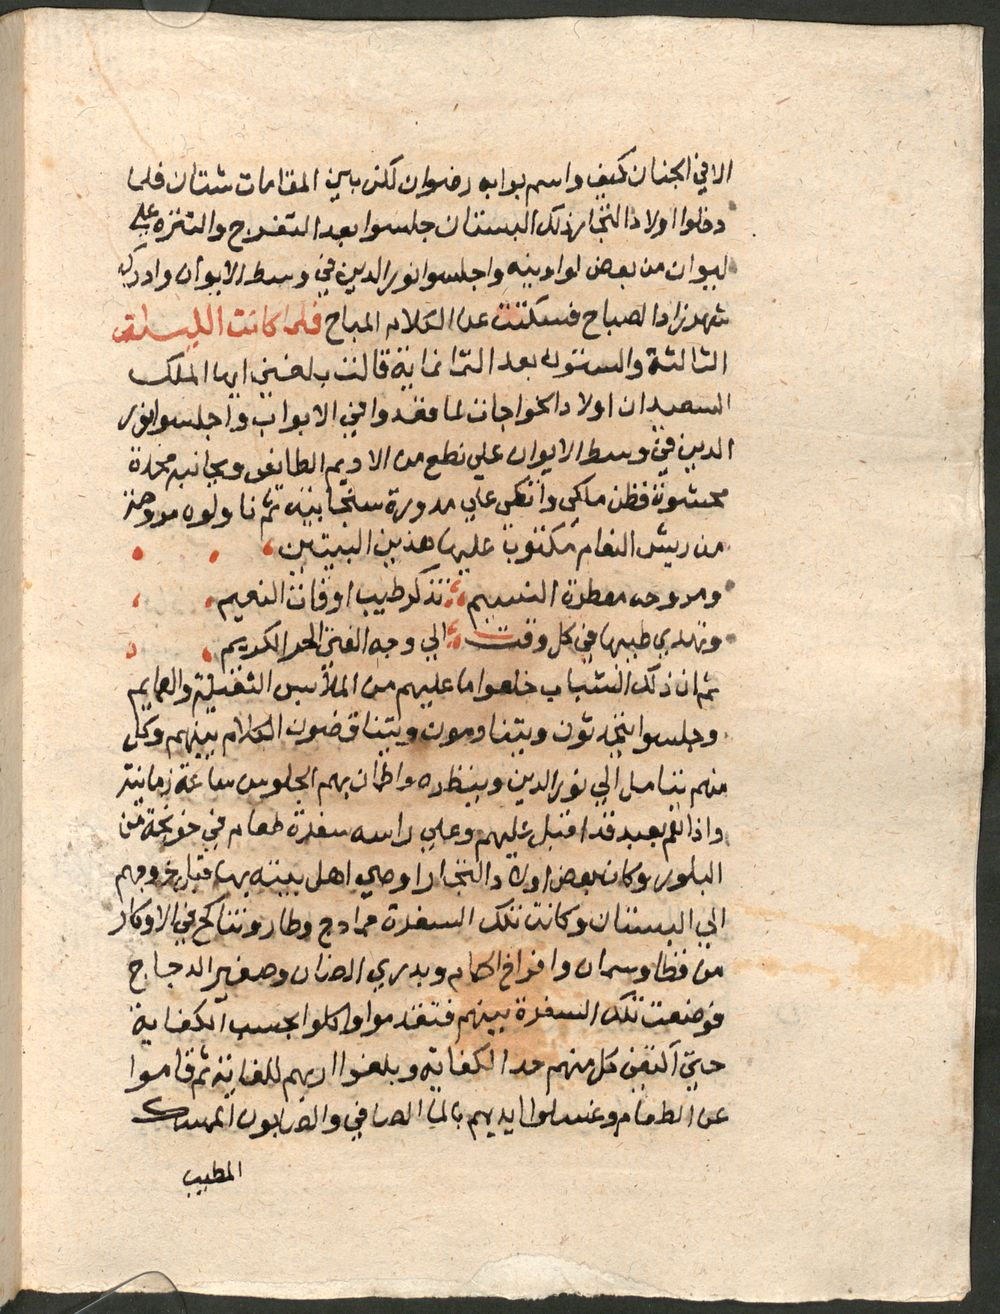 الا في الجنان كيف واسم بوابه رضوان لكن بين المقامات شتان فلما
دخلوا اولاد التجار ذلك البستان جلسوا بعد التفرج والتنزه علي
ليوان من بعض لواوينه واجلسوا نور الدين في وسط الايوان وادرك
شهرزاد الصباح فسكتت عن الكلام المباح فلما كانت الليلة
الثالثة والستون بعد الثمانماية قالت بلغني ايها الملك
السعيد ان اولاد الخواجات لما قعدوا في الايوان واجلسوا نور
الدين في وسط الايوان علي نطع من الاديم الطايفي وبجانبه مخدة
محشوة قطن ملكي واتكي علي مدورة سنجابية ثم ناولوه مروحة
من ريش النعام مكتوب عليها هذين البيتين
ومروحه معطرة النسيم تذكر طيب اوقات النعيم
وتهدي طيبها في كل وقت الي وجه الفتى الحر الكريم
ثم ان ذلك الشباب خلعوا ما عليهم من الملابس الثقيلة والعمايم
وجلسوا يتحدثون ويتنادمون ويتناقضون الكلام بينهم وكل
منهم يتامل الي نور الدين وينظره واطمان بهم الجلوس ساعة زمانية
واذا بعبد قد اقبل عليهم وعلي راسه سفرة طعام في خونجة من
البلور وكان بعض اولاد التجار اوصي اهل بيته بها قبل خروجهم
الي البستان وكانت تلك السفرة مما درج وطار وتناكح في الاوكار
من قطا وسمان وافراخ الحمام وبدري الضان وصغير الدجاج
فوضعت تلك السفرة بينهم فتقدموا واكلوا بحسب الكفاية
حتي اكتفي كل منهم حد الكفاية وبلغوا اربهم للغاية ثم قاموا
عن الطعام وغسلوا ايديهم بالما الصافي والصابون الممسك
المطيب